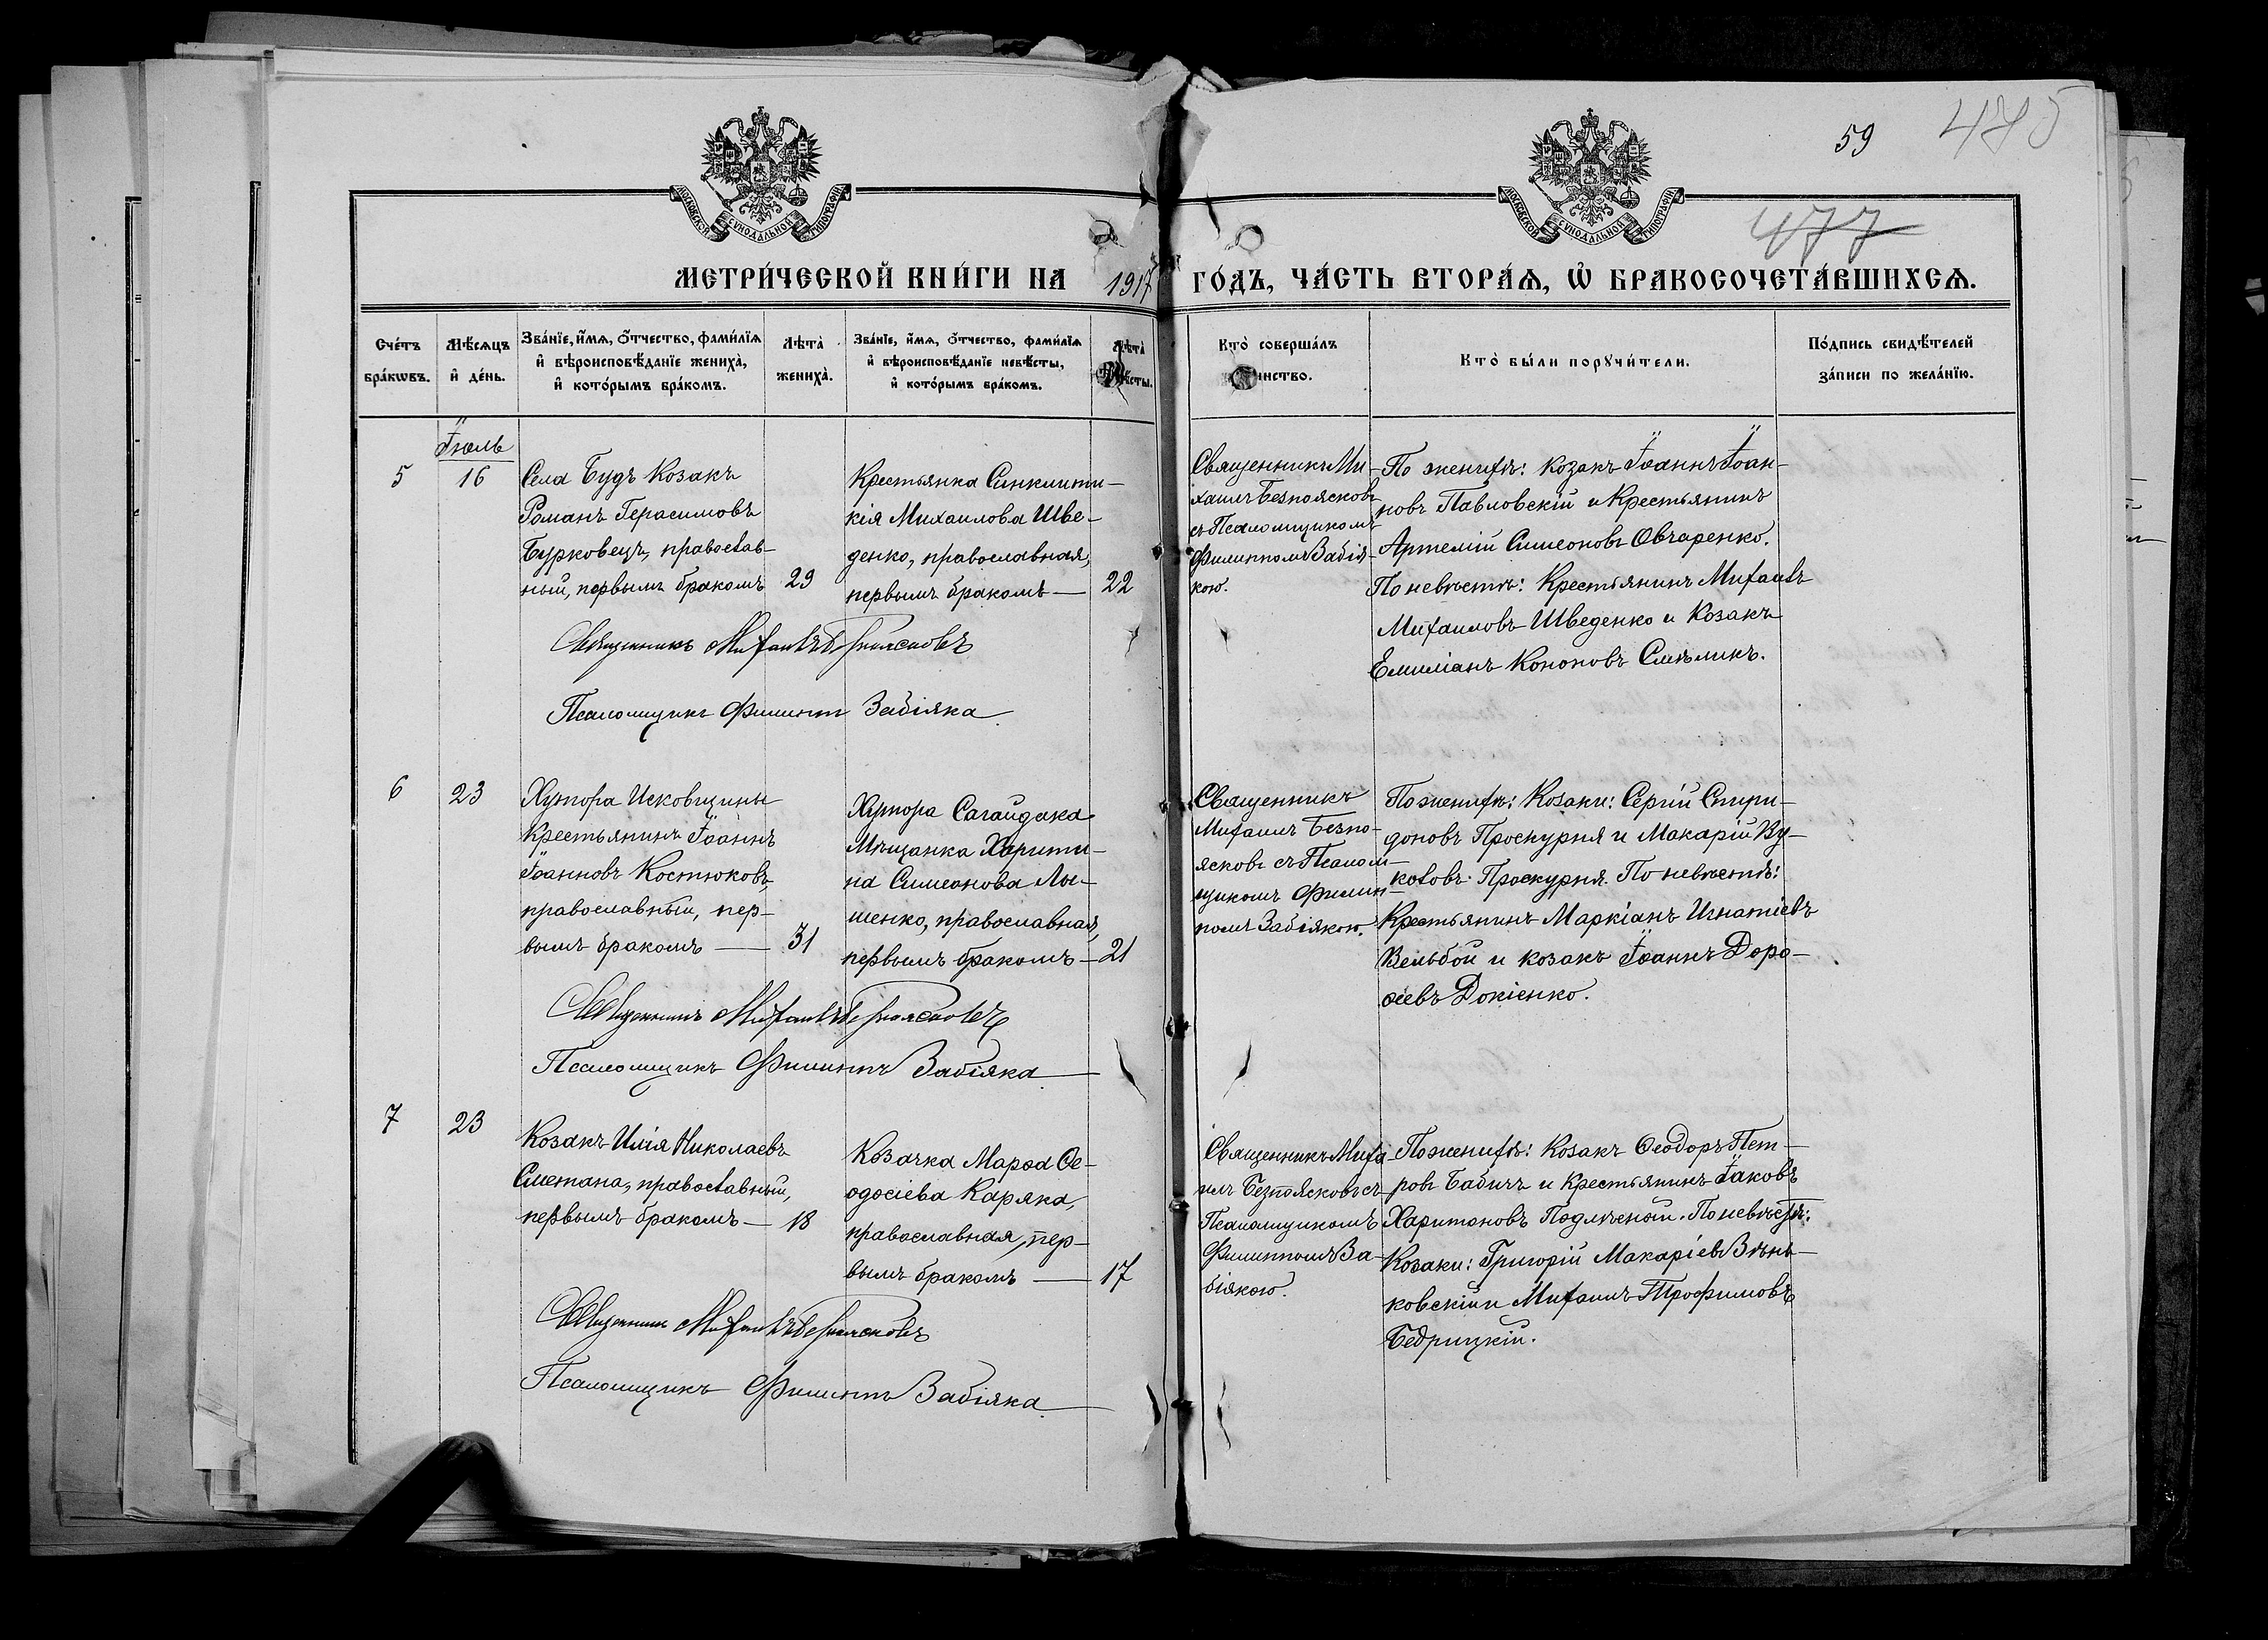 59
475
477
МОСКОВСКОЙ СѴНОДАЛЬНОЙ ТИПОГРАФІИ
МОСКОВСКОЙ СѴНОДАЛЬНОЙ ТИПОГРАФІИ
МЕТРИ́ЧЕСКОЙ КНИ́ГИ НА 1917 ГО́ДЪ, ЧА́СТЬ ВТОРА́Ѧ, Ѡ҆ БРАКОСОЧЕТА́ВШИХСѦ.
Сче́тъ
бра́кѡвъ.
Мѣ́сѧцъ
и҆ де́нь.
Зва́нїе, и҆́мѧ, ѻ҆́тчество, фами́лїѧ
и҆ вѣроисповѣ́данїе жениха̀,
и҆ кото́рымъ бра́комъ.
Лѣ́та
жениха̀.
Зва́нїе, и҆́мѧ, ѻ҆́тчество, фами́лїѧ
и҆ вѣроисповѣ́данїе невѣ́сты,
и҆ кото́рымъ бра́комъ.
Лѣ́та
невѣ́сты.
Кто̀ соверша́лъ
таинство.
Кто̀ бы́ли порꙋчи́тели.
По́дпись свидѣ́телей
за́писи по жела́нїю.
Іюль
5
16
Села Будъ Козакъ
Романъ Герасимовъ
Бурковецъ, православ-
ный, первымъ бракомъ
29
Крестьянка Синклити-
кія Михаилова Шве-
денко, православная,
первымъ бракомъ —
22
Священникъ Ми-
хаилъ Безпоясковъ
съ Псаломщикомъ
Филиппомъ Забія-
кою.
По женихѣ: козакъ Іоаннъ Іоан-
новъ Павловскій и Крестьянинъ
Артемій Симеоновъ Овчаренко.
По невѣстѣ: Крестьянинъ Михаилъ
Михаиловъ Шведенко и Козакъ
Емиліанъ Кононовъ Смѣликъ.
Священникъ Михаилъ Безпоясковъ
Псаломщикъ Филиппъ Забіяка
6
23
Хутора Исковщины
Крестьянинъ Іоаннъ
Іоанновъ Костюковъ,
православный, пер-
вымъ бракомъ —
31
Хутора Сагайдака
Мѣщанка Харити-
на Симеонова Лы-
шенко, православная,
первымъ бракомъ —
21
Священникъ
Михаилъ Безпо-
ясковъ съ Псалом-
щикомъ Филип-
помъ Забіякою.
По женихѣ: Козаки: Сергій Спири-
доновъ Проскурня и Макарій Ву-
коловъ Проскурня. По невѣстѣ:
Крестьянинъ Маркіанъ Игнатіевъ
Вельбой и козакъ Іоаннъ Доро-
ѳеевъ Докіенко.
Священникъ Михаилъ Безпоясковъ
Псаломщикъ Филиппъ Забіяка
7
23
Козакъ Илія Николаевъ
Сметана, православный,
первымъ бракомъ —
18
Козачка Марѳа Ѳе-
одосіева Каряка,
православная, пер-
вымъ бракомъ —
17
Священникъ Миха-
илъ Безпоясковъ съ
Псаломщикомъ
Филиппомъ За-
біякою.
По женихѣ: Козакъ Ѳеодоръ Пет-
ровъ Бабичъ и Крестьянинъ Іаковъ
Харитоновъ Подлѣсный. По невѣстѣ:
Козаки: Григорій Макаріевъ Вѣнь-
ковскій и Михаилъ Трофимовъ
Бедрицкій.
Священникъ Михаилъ Безпоясковъ
Псаломщикъ Филиппъ Забіяка